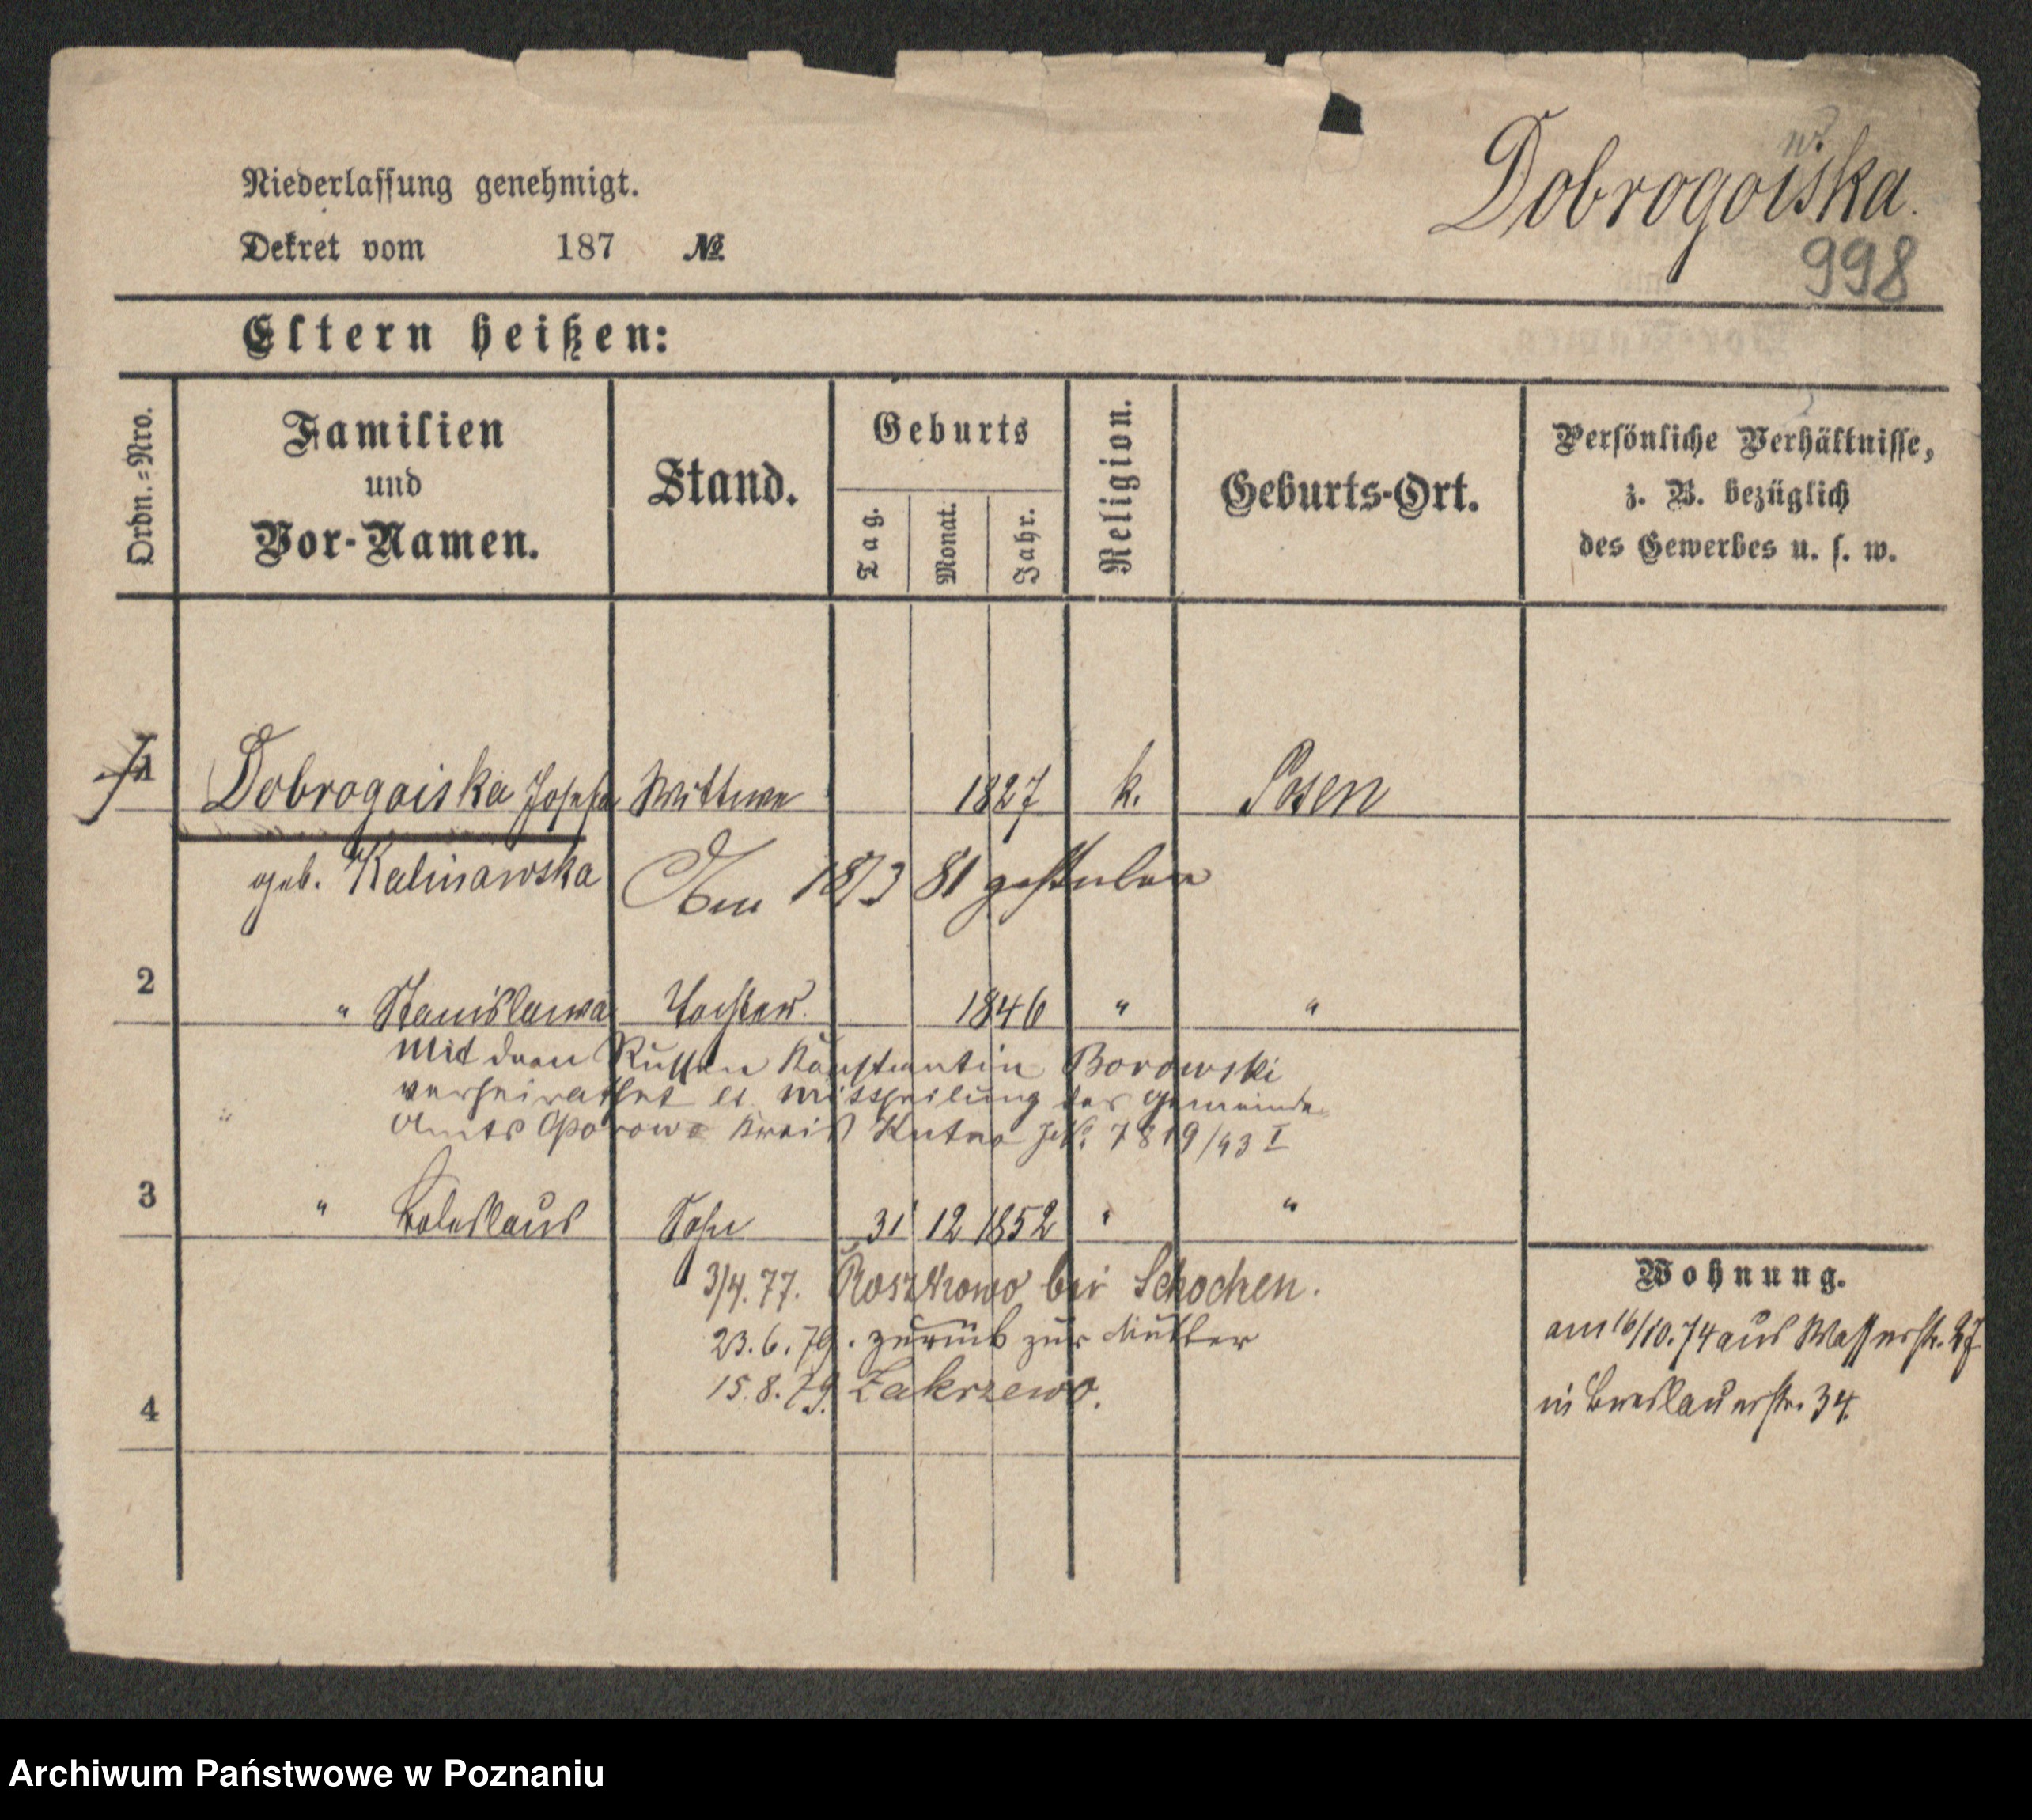 Niederlassung genehmigt.
Dekret vom 187 №
Dobrogoiska.
998
Eltern heißen:
Ordn.=Nro.
Familien
und
Vor-Namen.
Stand.
Geburts
Tag.
Monat.
Jahr.
Religion.
Geburts-Ort.
Persönliche Verhältnisse,
z. B. bezüglich
des Gewerbes u. s. w.
1 Dobrogoiska Josefa Wittwe 1827 k. Posen
geb. Kalinowska
Am 18/3 81 gestorben
2 " Stanislawa Tochter. 1846 " "
Mit dem Russen Konstantin Borowski
verheirathet lt. Mittheilung des Gemeinde
Amts Oporow Kreis Kutno 7819/93 I
3 " Boleslaus Sohn 31 12 1852 " "
3/4. 77. Roszkowo bei Schochen.
23. 6. 79. zurück zur Mutter
15. 8. 79. Zakrzewo.
4
Wohnung.
am 16/10. 74 aus Wasserstr. 27
in Breslauerstr. 34.
Archiwum Państwowe w Poznaniu